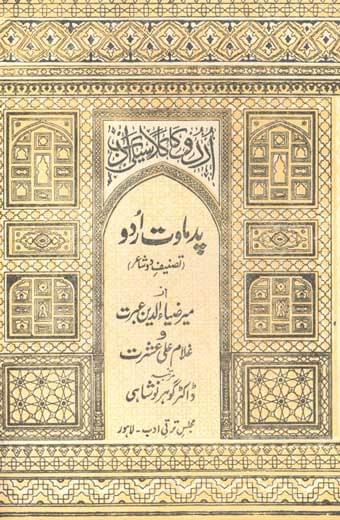 اُردو کا کلاسیکی ادب
پدماوت اُردو
(تصنیف دو شاعر)
از
میر ضیاء الدین عبرت
و
غلام علی عشرت
مرتبہ
ڈاکٹر گوہر نوشاہی
مجلس ترقی ادب - لاہور